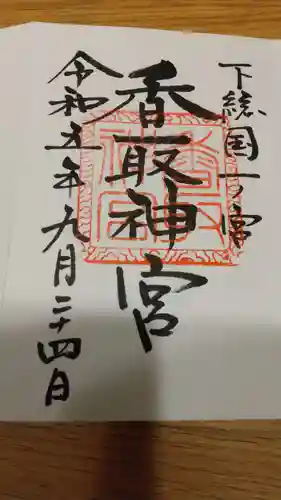 下総国一宮
香取神宮
令和五年九月二十四日